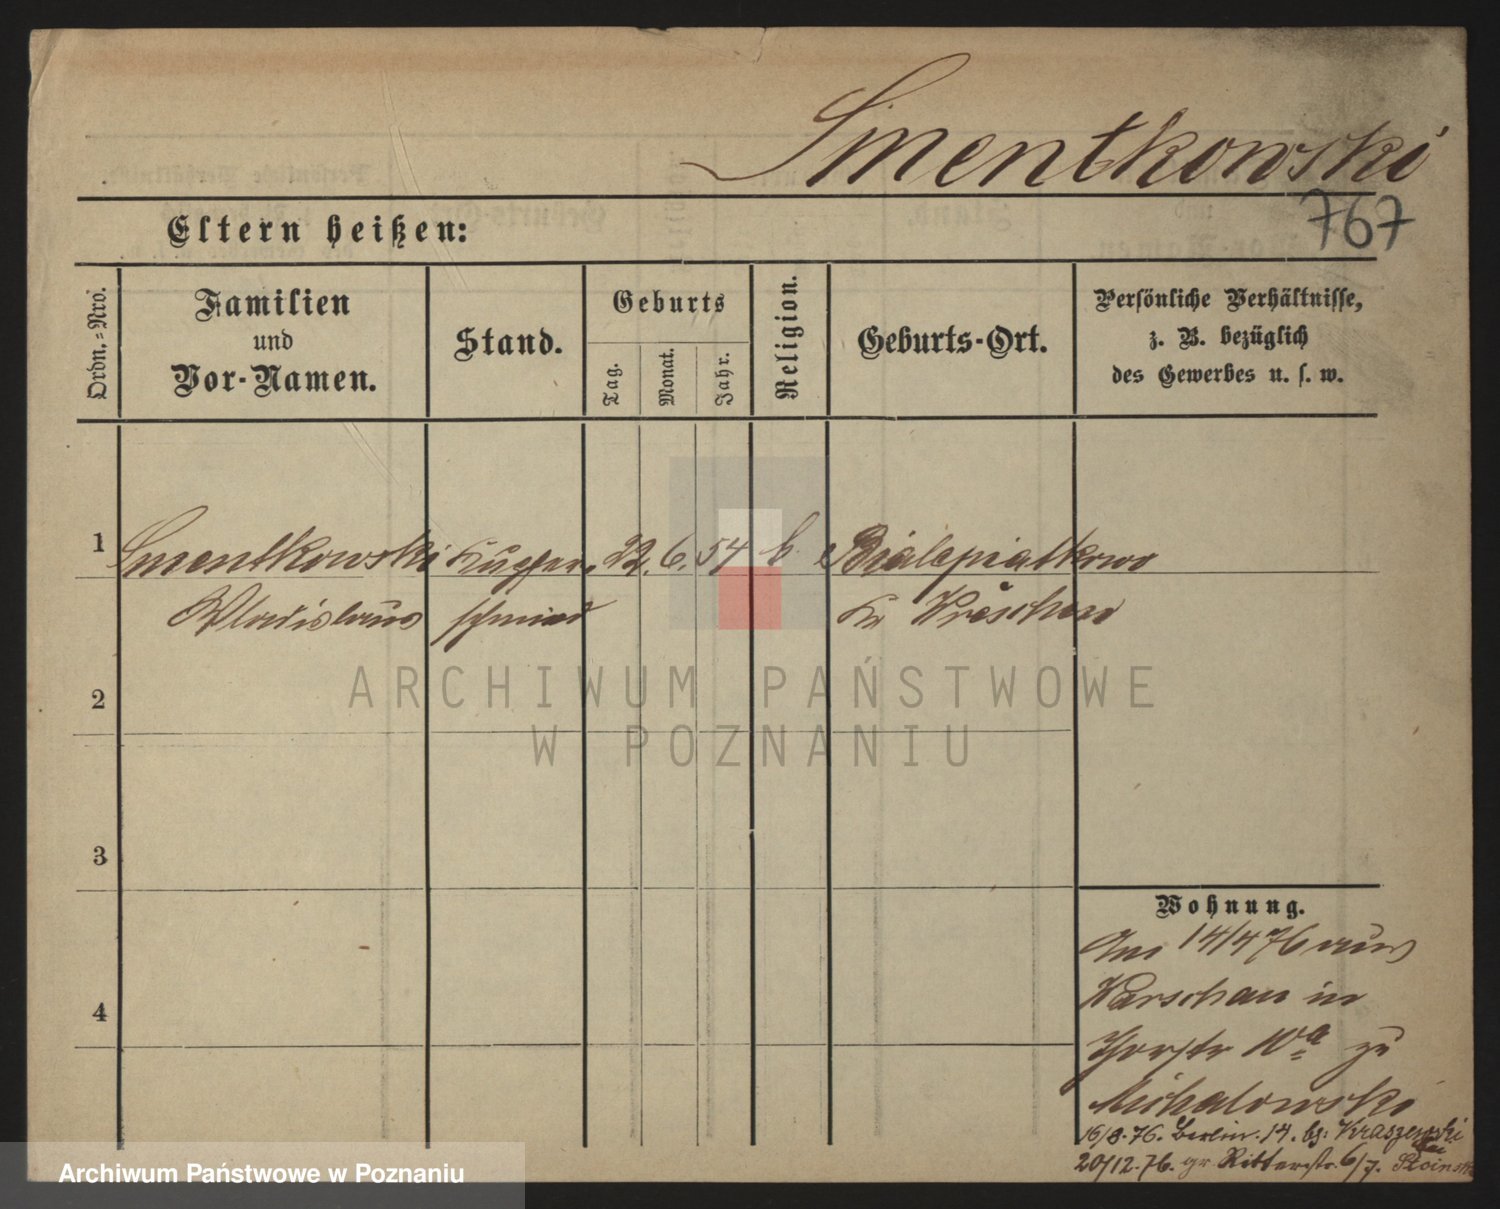 Smentkowski
767
Eltern heißen:
Ordn.=Nro.
Familien
und
Vor-Namen.
Stand.
Geburts
Tag.
Monat.
Jahr.
Religion.
Geburts-Ort.
Persönliche Verhältnisse,
z. B. bezüglich
des Gewerbes u. s. w.
1 Smentkowski Kupfer 22. 6. 54 Bialepiatkowo
Wladislaus schmied Kr Wreschen
ARCHIWUM PAŃSTWOWE
W POZNANIU
2
3
4
Wohnung.
Am 14/4 76 aus
Warschau in
10a zu
Michalowski
16/8. 76. Berlin. 14. bei Kraszewski
20/12. 76. gr Ritterstr. 6/7.
Archiwum Państwowe w Poznaniu